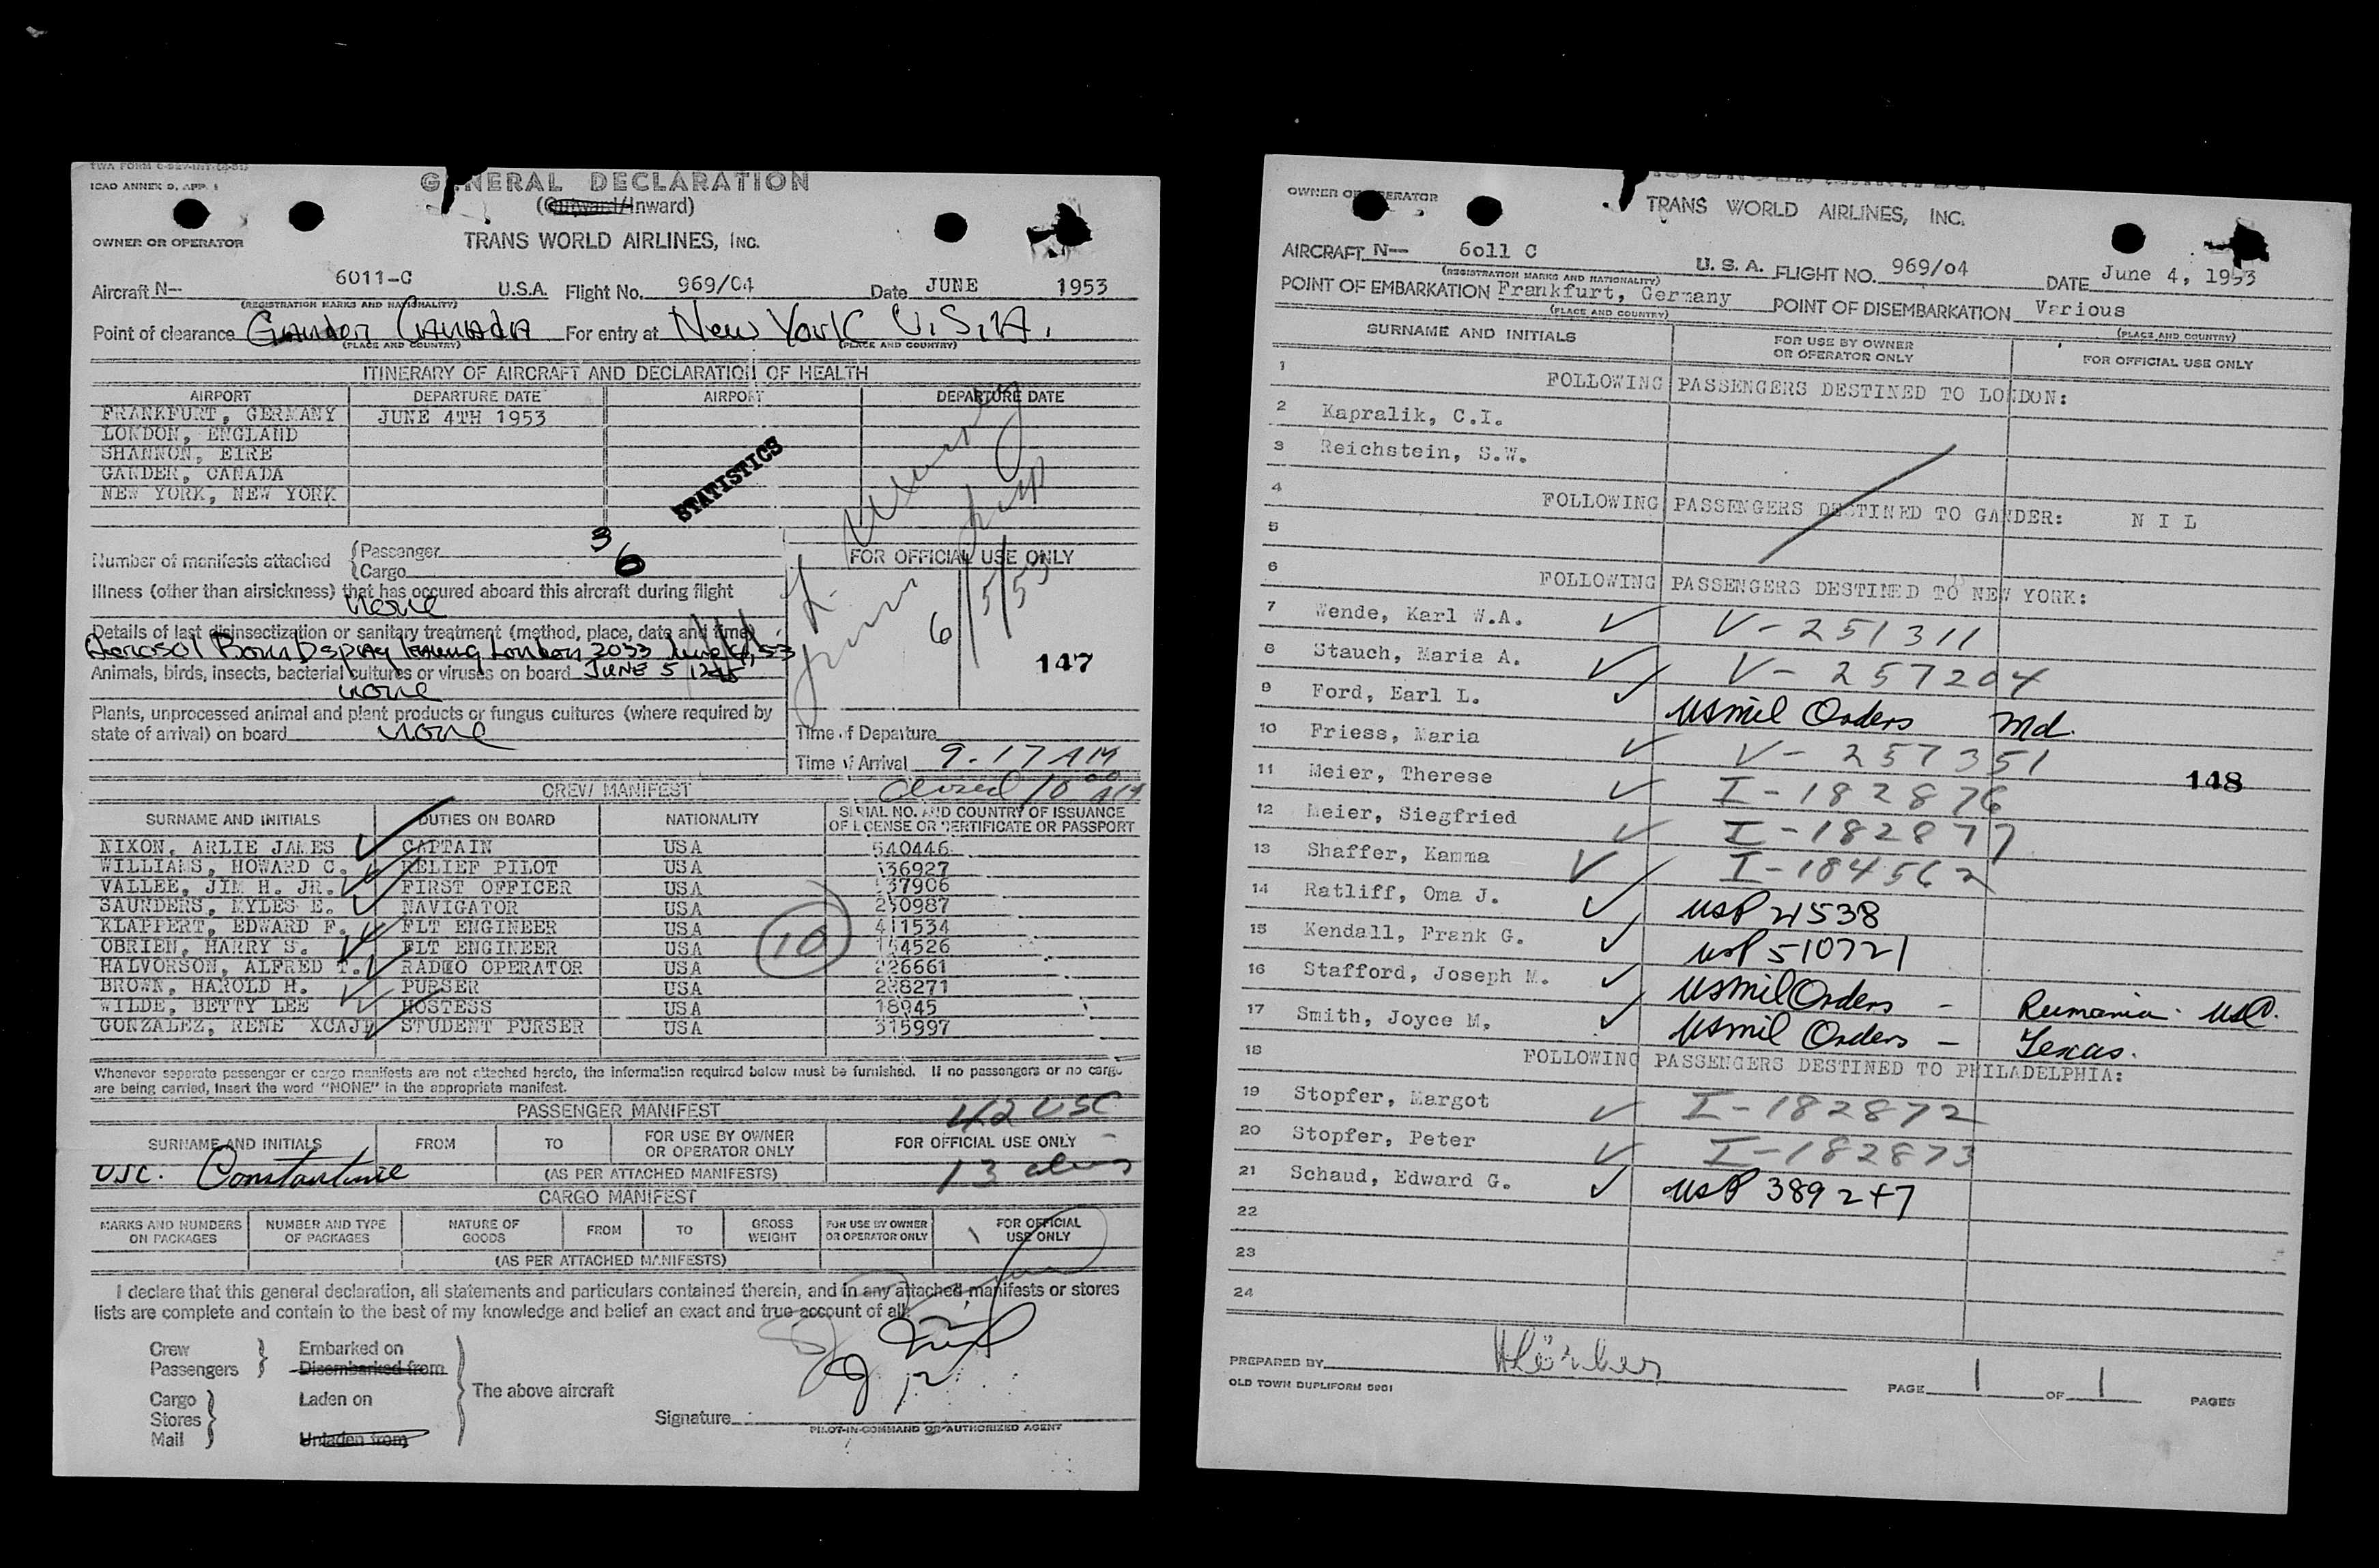 TWA FORM C-527-INT-(2-51)
ICAO ANNEX 9, APP. 1
GENERAL DECLARATION
(Outward/Inward)
OWNER OR OPERATOR TRANS WORLD AIRLINES, INC.
Aircraft N— 6011-C U.S.A. Flight No. 969/04 Date JUNE 1953
(REGISTRATION MARKS AND NATIONALITY)
Point of clearance Gander CANADA For entry at New York U.S.A.
(PLACE AND COUNTRY) (PLACE AND COUNTRY)
ITINERARY OF AIRCRAFT AND DECLARATION OF HEALTH
AIRPORT DEPARTURE DATE AIRPORT DEPARTURE DATE
FRANKFURT, GERMANY JUNE 4TH 1953
LONDON, ENGLAND
SHANNON, EIRE
GANDER, CANADA
NEW YORK, NEW YORK
STATISTICS
Number of manifests attached { Passenger 3
{ Cargo 6
FOR OFFICIAL USE ONLY
6/5/53
Illness (other than airsickness) that has occured aboard this aircraft during flight
none
Details of last disinsectization or sanitary treatment (method, place, date and time)
Aerosol Bomb spray leaving London 2033 June 4, 53
147
Animals, birds, insects, bacterial cultures or viruses on board JUNE 5
none
Plants, unprocessed animal and plant products or fungus cultures (where required by
state of arrival) on board none
Time of Departure
Time of Arrival 9-17 AM
closed 10 00 AM
CREW MANIFEST
SURNAME AND INITIALS DUTIES ON BOARD NATIONALITY SERIAL NO. AND COUNTRY OF ISSUANCE OF LICENSE OR CERTIFICATE OR PASSPORT
NIXON, ARLIE JAMES CAPTAIN USA 540446
WILLIAMS, HOWARD C. RELIEF PILOT USA 36927
VALLEE, JIM H. JR. FIRST OFFICER USA 37906
SAUNDERS, MYLES E. NAVIGATOR USA 250987
KLAPPERT, EDWARD F. FLT ENGINEER USA 411534
OBRIEN, HARRY S. FLT ENGINEER USA 164526
HALVORSON, ALFRED T. RADIO OPERATOR USA 226661
BROWN, HAROLD H. PURSER USA 288271
WILDE, BETTY LEE HOSTESS USA 18945
GONZALEZ, RENE XCAJD STUDENT PURSER USA 315997
10
Whenever separate passenger or cargo manifests are not attached hereto, the information required below must be furnished. If no passengers or no cargo
are being carried, insert the word "NONE" in the appropriate manifest.
PASSENGER MANIFEST 42 USC
SURNAME AND INITIALS FROM TO FOR USE BY OWNER OR OPERATOR ONLY FOR OFFICIAL USE ONLY
USC. Constantine (AS PER ATTACHED MANIFESTS) 13 aliens
CARGO MANIFEST
MARKS AND NUMBERS ON PACKAGES NUMBER AND TYPE OF PACKAGES NATURE OF GOODS FROM TO GROSS WEIGHT FOR USE BY OWNER OR OPERATOR ONLY FOR OFFICIAL USE ONLY
(AS PER ATTACHED MANIFESTS)
I declare that this general declaration, all statements and particulars contained therein, and in any attached manifests or stores
lists are complete and contain to the best of my knowledge and belief an exact and true account of all
Crew Embarked on
Passengers Disembarked from
The above aircraft
Cargo Laden on
Stores
Mail Unladen from
Signature
PILOT-IN-COMMAND OR AUTHORIZED AGENT
OWNER OR OPERATOR TRANS WORLD AIRLINES, INC.
AIRCRAFT N— 6011 C U. S. A. FLIGHT NO. 969/04 DATE June 4, 1953
(REGISTRATION MARKS AND NATIONALITY)
POINT OF EMBARKATION Frankfurt, Germany POINT OF DISEMBARKATION Various
(PLACE AND COUNTRY) (PLACE AND COUNTRY)
SURNAME AND INITIALS FOR USE BY OWNER OR OPERATOR ONLY FOR OFFICIAL USE ONLY
1 FOLLOWING PASSENGERS DESTINED TO LONDON:
2 Kapralik, C.I.
3 Reichstein, S.W.
4 FOLLOWING PASSENGERS DESTINED TO GANDER: N I L
5
6 FOLLOWING PASSENGERS DESTINED TO NEW YORK:
7 Wende, Karl W.A. V-251311
8 Stauch, Maria A. V-257204
9 Ford, Earl L. USmil Orders Md.
10 Friess, Maria V-257351
11 Meier, Therese I-182876
148
12 Meier, Siegfried I-182877
13 Shaffer, Kamma I-184562
14 Ratliff, Oma J. USP 21538
15 Kendall, Frank G. USP 510721
16 Stafford, Joseph M. USmil Orders - Rumania. USC.
17 Smith, Joyce M. USmil Orders - Texas.
18 FOLLOWING PASSENGERS DESTINED TO PHILADELPHIA:
19 Stopfer, Margot I-182872
20 Stopfer, Peter I-182873
21 Schaud, Edward G. USP 389247
22
23
24
PREPARED BY
OLD TOWN DUPLIFORM 5901 PAGE 1 OF 1 PAGES